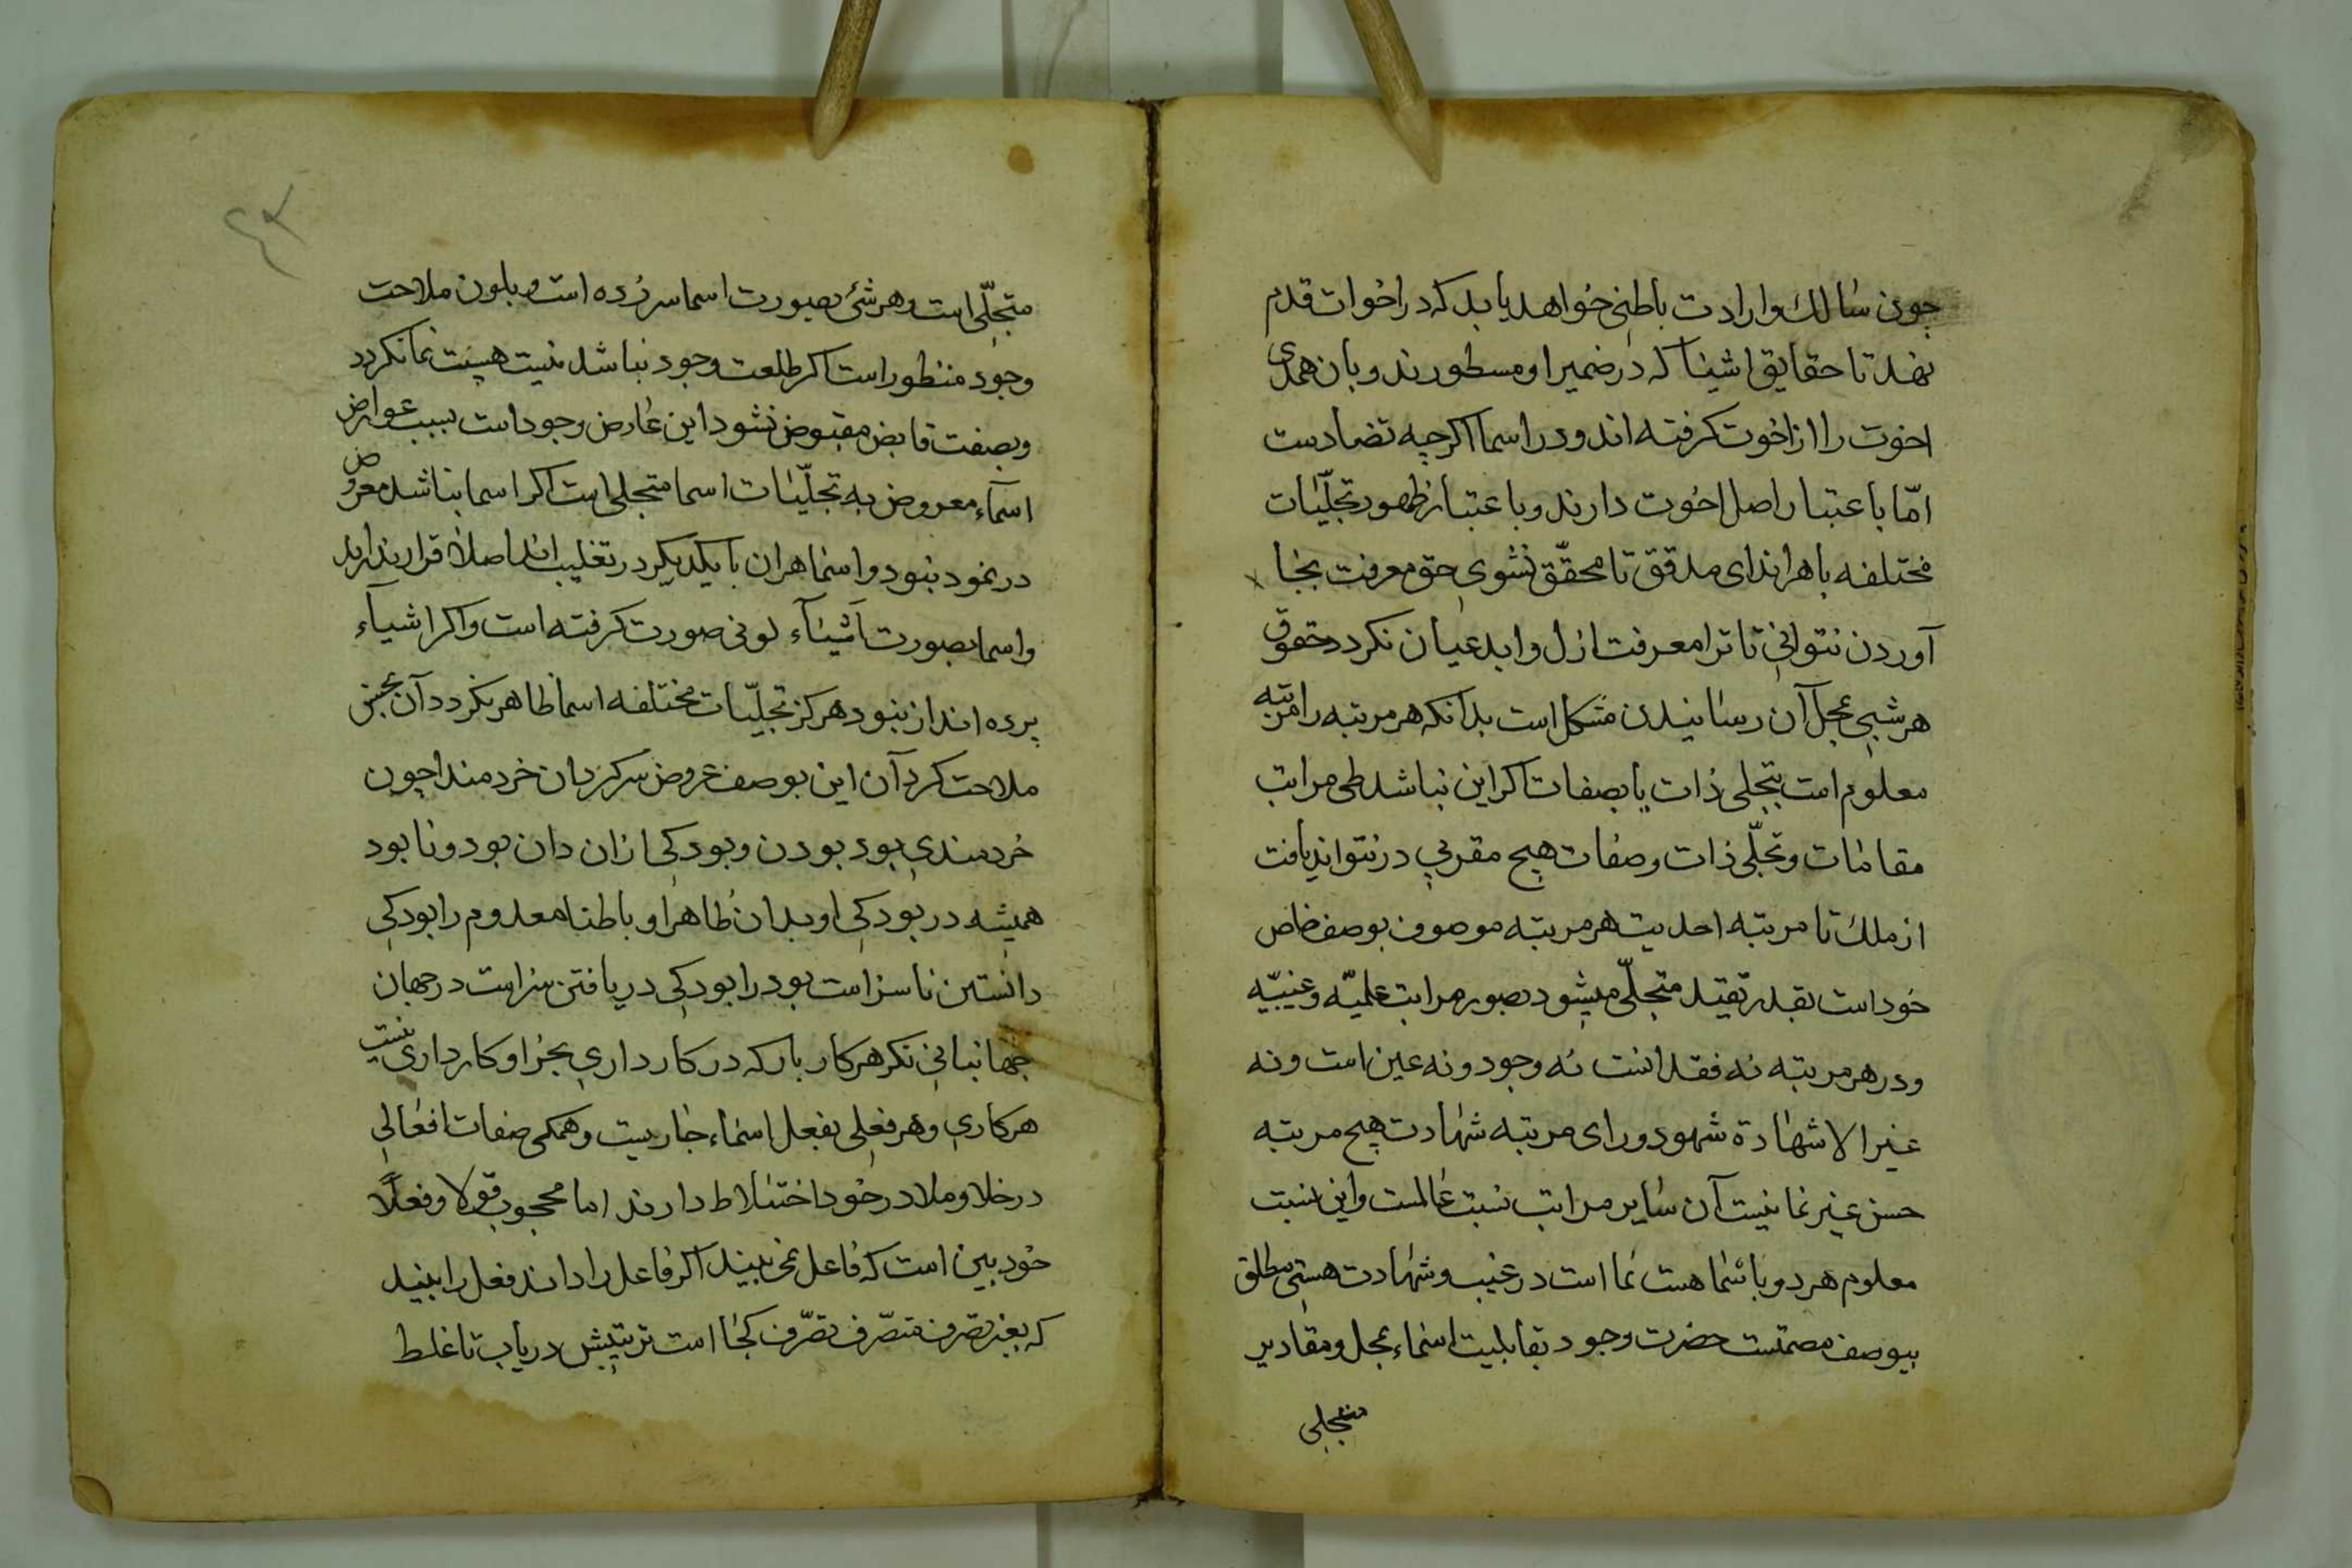 چون سالك وارادت باطنی خواهد یابد که در اخوات قدم
نهد تا حقایق اشیا که در ضمیر او مسطورند و بان همدی
اخوت را از اخوت کرفته اند و در اسما اکرچه تضادست
امّا باعتبار اصل اخوت دارند و باعتبار ظهور تجلّیات
مختلفه باهراند ای مدقق تا محقّق نشوی حق معرفت بجا
آوردن نتوانی تا ترا معرفت ازل و ابد عیان نکردد حقوق
هر شیی بمحل آن رسانیدن مشکل است بدآنکه هر مرتبه را مرتبه
معلوم است بتجلی ذات یا بصفات اکر این نباشد طی مراتب
مقامات و تجلّی ذات و صفات هیچ مقربی در نتواند یافت
از ملك تا مرتبه احدیت هر مرتبه موصوف بوصف خاص
خود است بقدر تقید متجلّی میشود بصور مراتب علمیّه و غیبیّه
و در هر مرتبه نه فقد انست نه وجود و نه عین است و نه
غیر الا شهادة شهود ورای مرتبه شهادت هیچ مرتبه
حسن غیر نما نیست آن سایر مراتب نسبت عالمست و این نسبت
معلوم هر دو باسما هست نما است در غیب و شهادت هستی مطلق
بیوصف مصمتست حضرت وجود بقابلیت اسماء بمحل و مقادیر
متجلی
۴۳
متجلّی است و هر شئ بصورت اسما سر زده است و بلون ملاحت
وجود منظور است اکر طلعت وجود نباشد نیست هیئت نما نکردد
و بصفت قابض مقبوض نشود این عارض وجود است بسبب عوارض
اسمآء معروض به تجلّیات اسما متجلی است اکر اسما نباشد معروض
در نمود نبود و اسما هران با یکدیکر در تغلیب اند اصلا قرار ندارند
و اسما بصورت اشیآء لونی صورت کرفته است و اکر اشیآء
پرده انداز نبود هرکز تجلّیات مختلفه اسما ظاهر نکردد آن بجنس
ملاحت کرد آن این بوصف عروض سرکردان خردمندا چون
خردمندی بود بودن و بودکی ازان دان بود و نابود
همیشه در بودکی او بدان ظاهرا و باطنا معدوم را بودکی
دانستن ناسزاست بود را بودکی دریافتن سزاست در جهان
جهانبانی نکر هر کار بار که در کار داری بجز او کارداری نیست
هر کاری و هر فعلی بفعل اسماء جاریست و همکی صفات افعالی
در خلا و ملا در خود اختلاط دارند اما محجوب قولا و فعلاً
خودبین است که فاعل نمی بیند اکر فاعل را داند فعل را بیند
که بغیر تصرف متصرّف تصرّف کجا است ترتیبش دریاب تا غلط